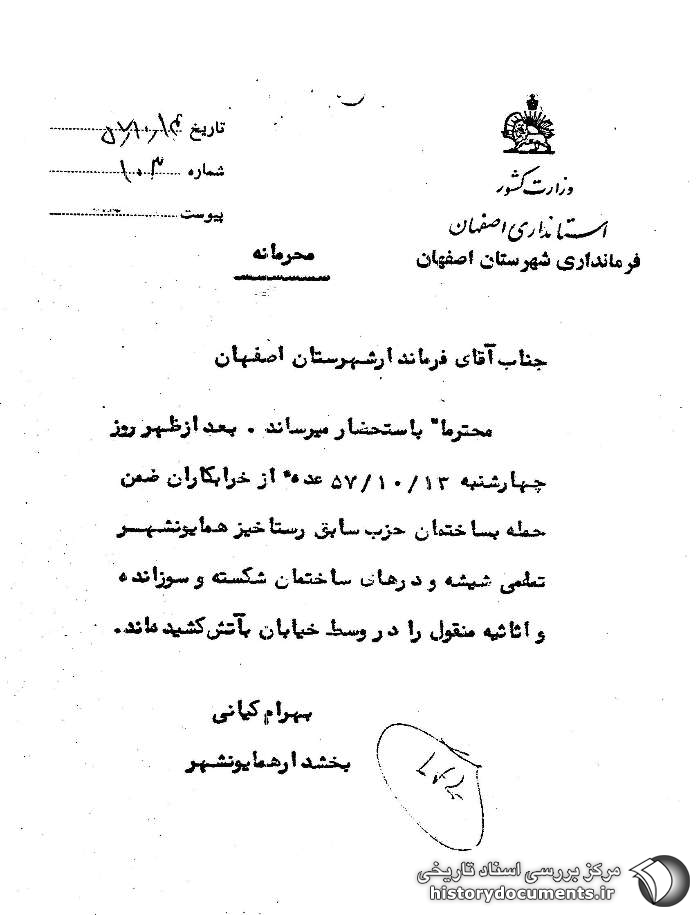 وزارت کشور
استانداری اصفهان
فرمانداری شهرستان اصفهان
تاریخ ۵۷/۱۰/۱۴
شماره ۱۰۰۳
پیوست
محرمانه
جناب آقای فرماندارشهرستان اصفهان
محترما" باستحضار میرساند . بعد ازظهر روز
چهارشنبه ۵۷/۱۰/۱۳ عده‌ء از خرابکاران ضمن
حمله بساختمان حزب سابق رستاخیز همایونشهر
تمامی شیشه و درهای ساختمان شکسته و سوزانده
و اثاثیه منقول را در وسط خیابان بآتش کشیده‌اند.
بهرام کیانی
بخشدارهمایونشهر
مرکز بررسی اسناد تاریخی
historydocuments.ir